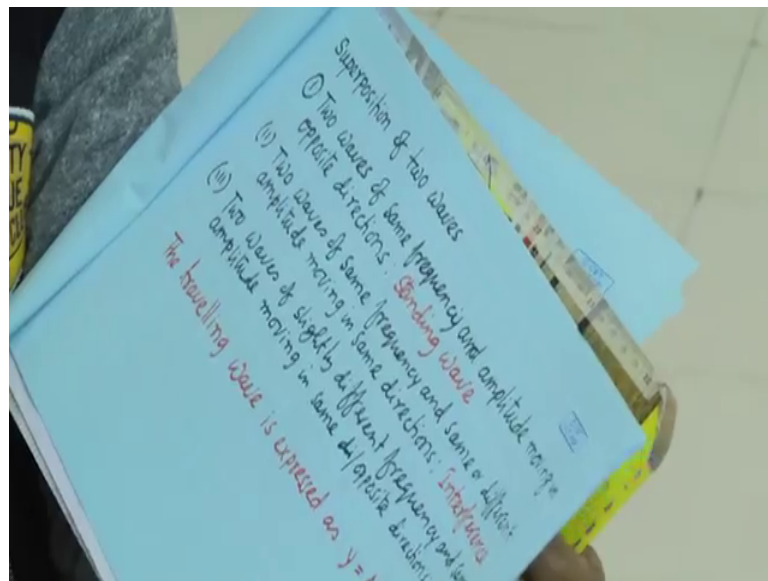 Superposition of two waves
(i) Two waves of same frequency and amplitude moving in
opposite directions: Standing wave
(ii) Two waves of same frequency and same or different
amplitude moving in same directions: Interference
(iii) Two waves of slightly different frequency and
amplitude moving in same di/opposite directions
The travelling wave is expressed as y =